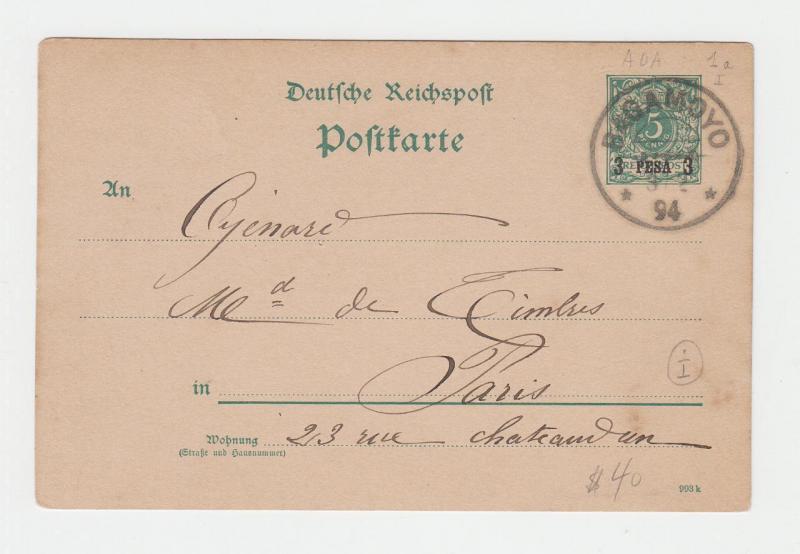 AOA 1a
I
Deutsche Reichspost
Postkarte
BAGAMOYO
5
PFENNIG
3 PESA 3
REICHSPOST
94
An
Md de Timbres
I
in Paris
Wohnung 23 rue Chateaudun
(Straße und Hausnummer)
$40
993 k